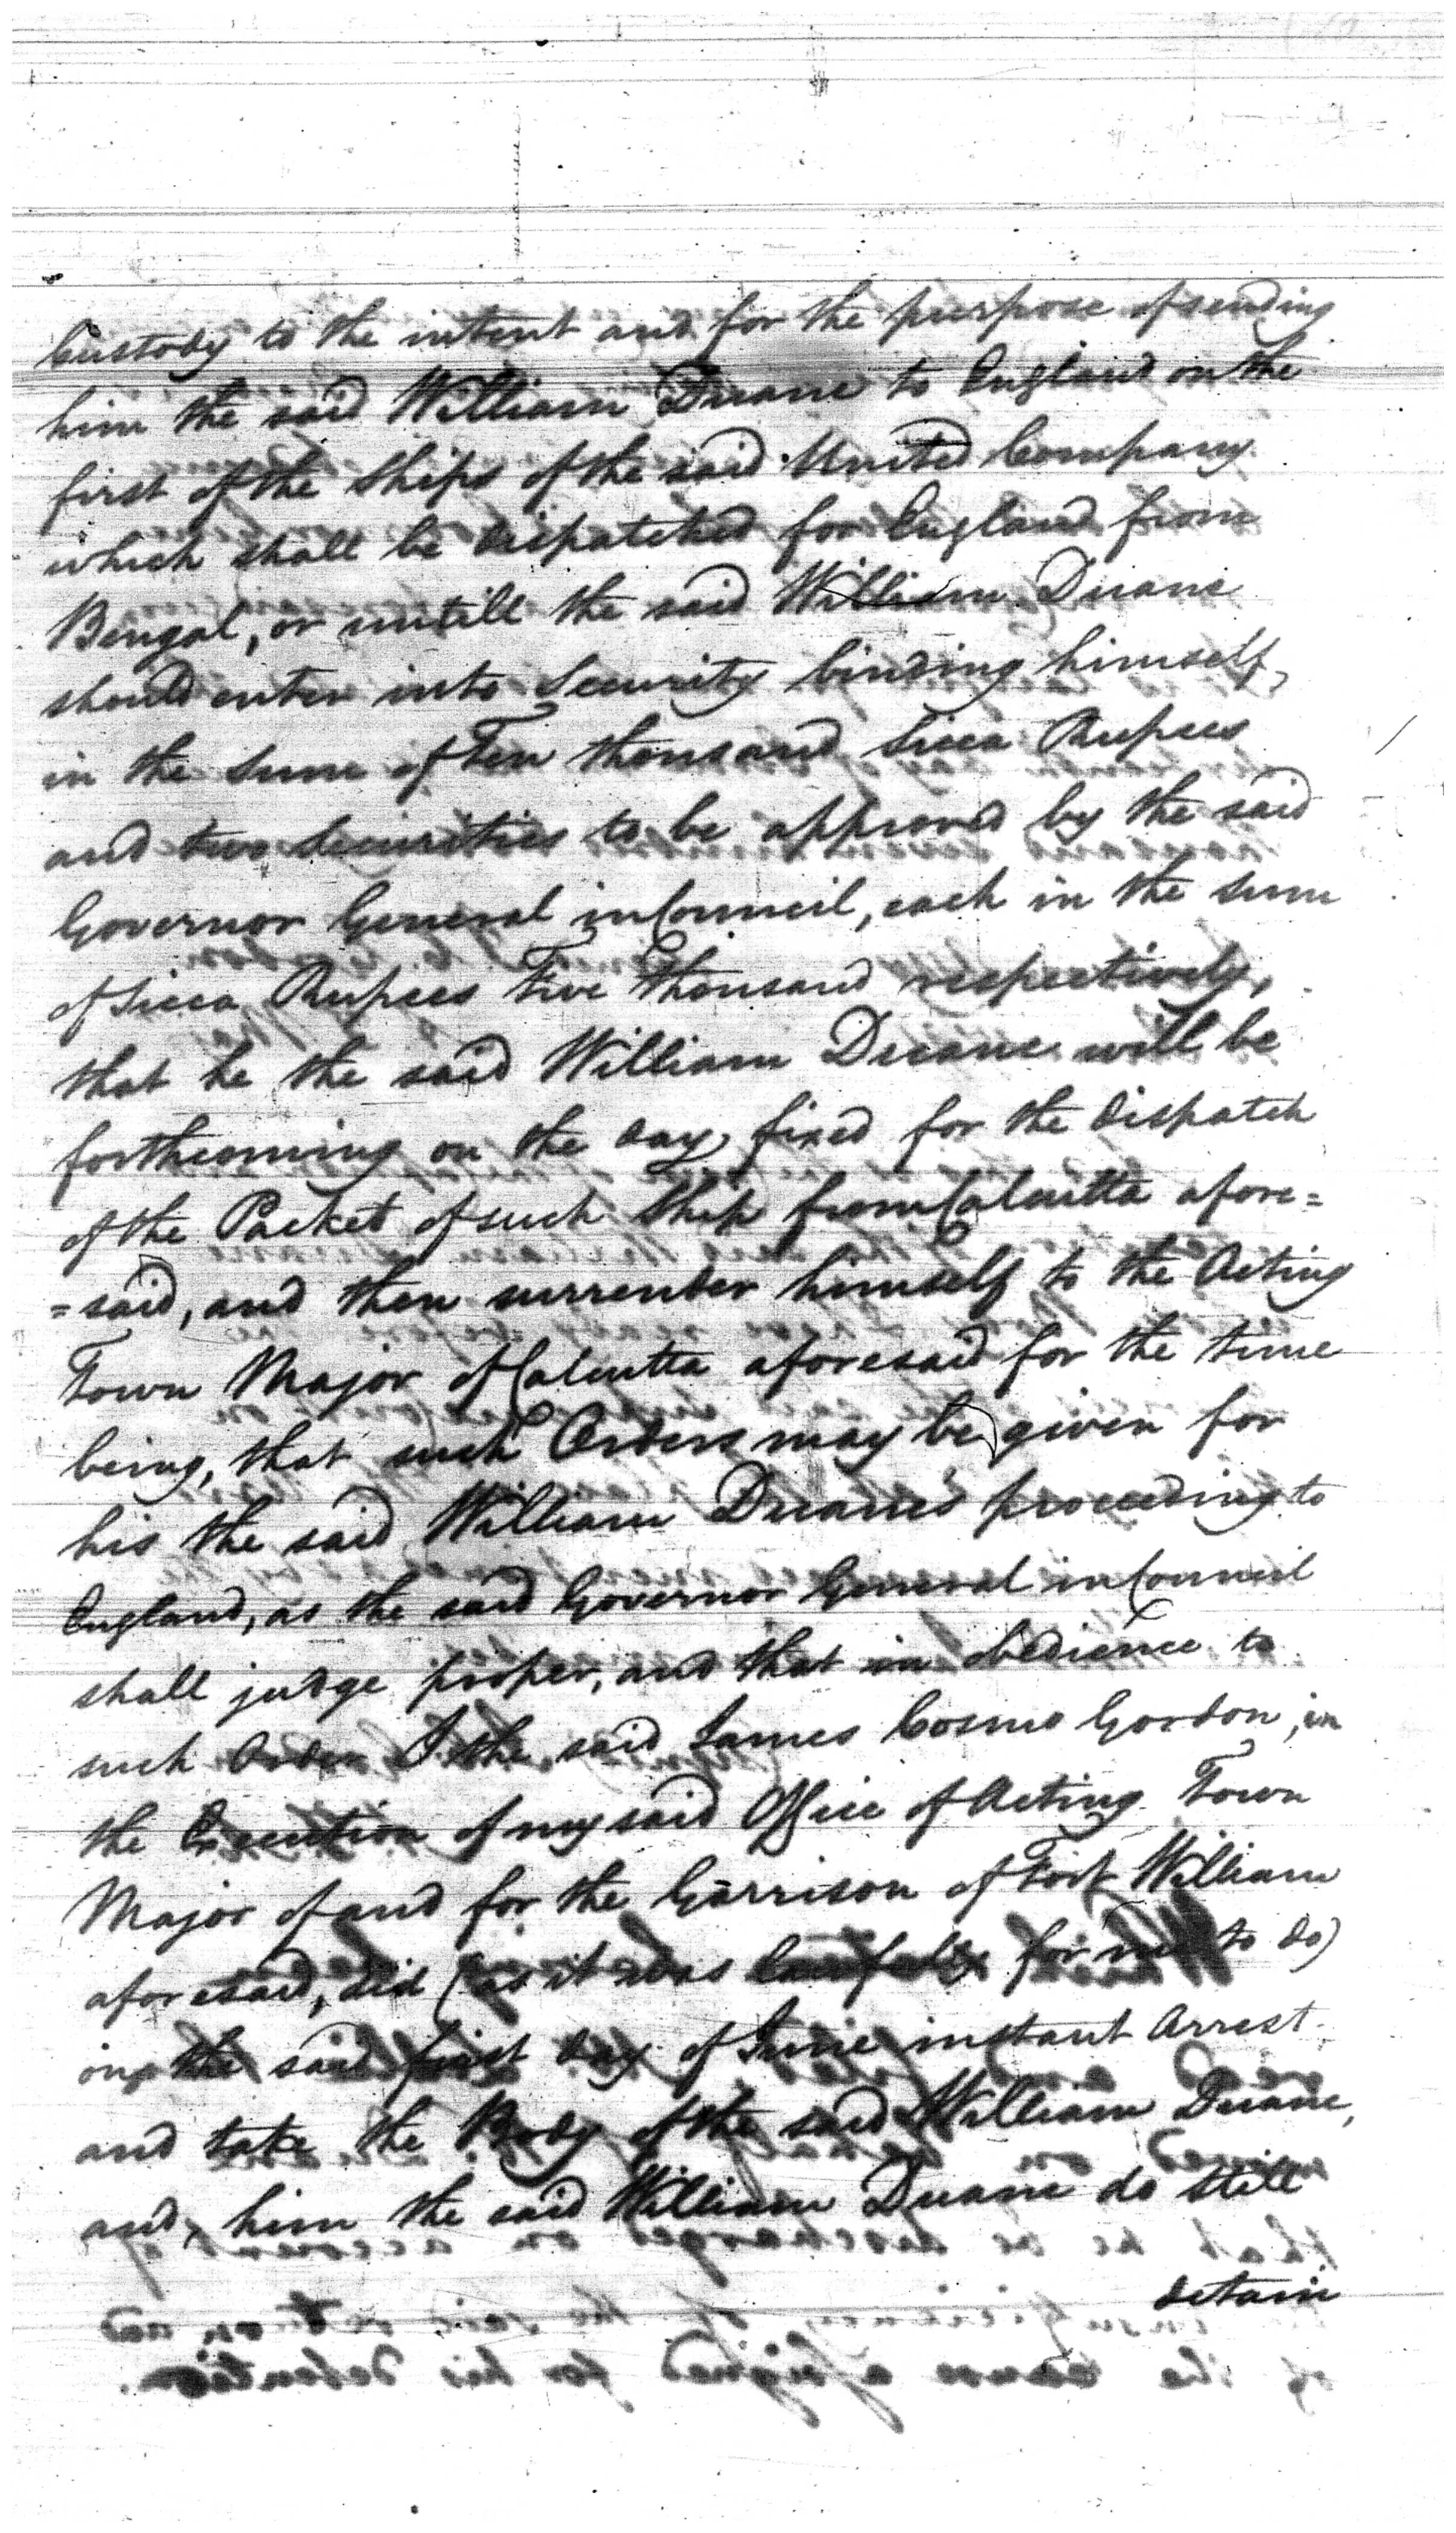 Custody to the intent and for the purpose of sending
him the said William Duane to England on the
first of the Ships of the said United Company
which shall be dispatched for England from
Bengal, or untill the said William Duane
should enter into Security binding himself,
in the Sum of Ten thousand Sicca Rupees
and two Securities to be approved by the said
Governor General in Council, each in the Sum
of Sicca Rupees Five thousand respectively,
that he the said William Duane will be
forthcoming on the day fixed for the dispatch
of the Packet of such Ship from Calcutta afore=
=said, and then surrender himself to the Acting
Town Major of Calcutta aforesaid for the time
being, that such Orders may be given for
his the said William Duanes proceeding to
England, as the said Governor General in Council
shall judge proper, and that in obedience to
such Order I the said James Cosmo Gordon, in
the Execution of my said Office of Acting Town
Major of and for the Garrison of Fort William
aforesaid, did (as it was lawfull for me to do)
on the said first day of June instant Arrest
and take the Body of the said William Duane,
and, him the said William Duane do still
detain